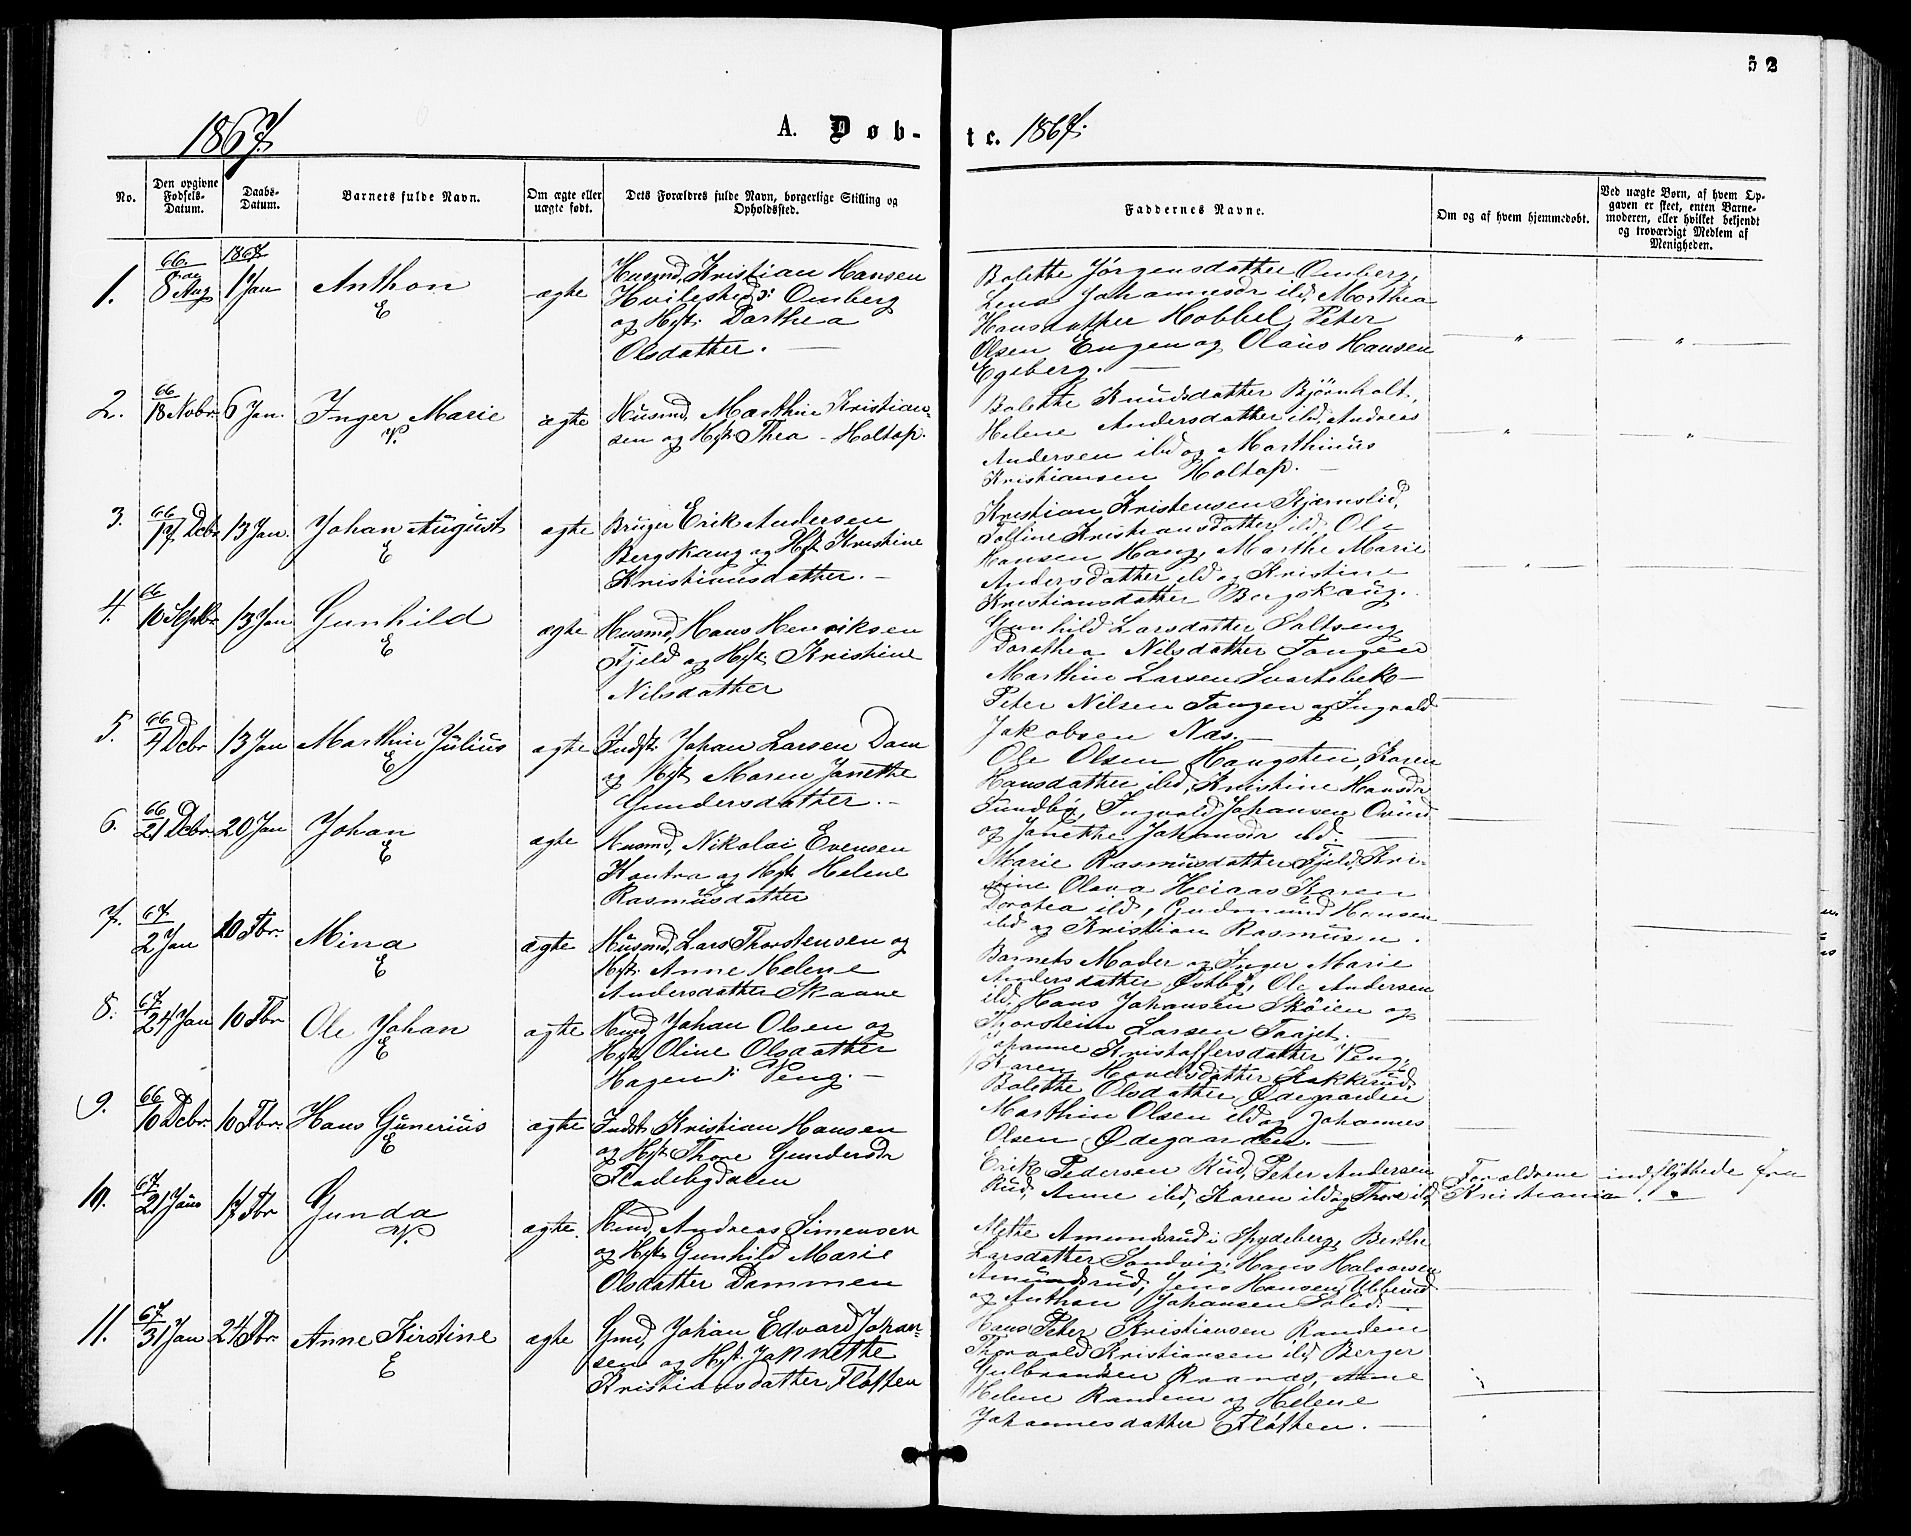 52
1867.
A. Døb-
te. 1867.
No.
Den opgivne Fødsels-Datum.
Daabs-Datum.
Barnets fulde Navn.
Om ægte eller uægte født.
Dets Forældres fulde Navn, borgerlige Stilling og Opholdssted.
Faddernes Navne.
Om og af hvem hjemmedøbt.
Ved uægte Børn, af hvem Opgaven er skeet, enten Barnemoderen, eller hvilket bekjendt og troværdigt Medlem af Menigheden.
1.
66.
8de Aug
1867.
1 Jan
Anthon
E
ægte
Husmd, Kristian Hansen
Hvilested i Omberg
og Hst: Dorthea
Olsdatter. —
Bolette Jørgensdatter Omberg,
Lena Johannesdr ibd, Marthea
Hansdatter Hobbel, Peter
Olsen Engen og Olaus Hansen
Egeberg. —
2.
66
18 Nobr.
6 Jan.
Inger Marie
V.
ægte
Husmd, Marthin Kristian-
sen og Hst: Thea — Holtop.
Bolette Knudsdatter Bjørnholt,
Helene Andersdatter ibd, Andreas
Andersen ibd og Marthinus
Kristiansen Holtop. —
3.
66
17 Dcbr
13 Jan.
Johan August
E
ægte
Bruger Erik Andersen
Bergskaug og Hst Kristine
Kristiansdatter. —
Kristian Kristensen Kjærnslid,
Kristiansdatter ibd, Ole
Hansen Haug, Marthe Marie
Andersdatter ibd og Kristine
Kristiansdatter Bergskaug.
4.
66
10 Septbr
13 Jan
Gunhild
E
ægte
Husmd, Hans Henriksen
Fjeld og Hst: Kristine
Nilsdatter
Gunhild Larsdatter Saltveng
Dorthea Nilsdatter Tangen
Marthin Larsen Svartebek —
Peter Nilsen Tangen og Ingvald
Jakobsen Næs. —
5.
66
4 Dcbr
13 Jan
Marthin Julius
E
ægte
Indst: Johan Larsen Dam
og Hst Maren Janethe
Gundersdatter. —
Ole Olsen Haugsten, Karen
Hansdatter ibd, Kristine Hansdr
Sundby, Ingvald Johansen
og Janekke Johansdr ibd. —
6.
66
21 Dcbr.
20 Jan
Johan
E
ægte
Husmd, Nikolai Evensen
Kantra og Hst Helene
Rasmusdatter
Marie Rasmusdatter Fjeld, Kri-
stine Olava Heiaas Karen
Dorthea ibd, Gudmund Hansen
ibd og Kristian Rasmusen.
7.
67.
2 Jan
10 Fbr.
Mina
E
ægte
Husmd, Lars Thorstensen og
Hst: Anne Helene
Andersdatter Skaane
Barnets Moder og Inger Marie
Andersdatter Østby, Ole Andersen
ibd, Hans Johansen Skøien og
Thorstein Larsen Taajet.
8.
67
24 Jan
10 Fbr
Ole Johan
E
ægte
Husmd, Johan Olsen og
Hst: Oline Olsdatter
Hagen i Veng. —
Johanne Kristoffersdatter Veng,
Karen Hansdatter Kakkerud,
Bolette Olsdatter Ødegaarden
Marthin Olsen ibd og Johannes
Olsen, Ødegaarden. —
9.
66
10 Dcbr.
10 Fbr.
Hans Gunerius
E
ægte
Indst: Kristian Hansen
og Hst: Thore Gundersdr
Fladebydalen
Erik Pedersen Rud, Peter Andersen
Rud, Anne ibd, Karen ibd og Thore ibd,
Forældrene indflyttede fra
Kristiania.
10.
67.
21 Janu
17 Fbr
Gunda
V.
ægte.
Husmd, Andreas Simensen
og Hst: Gunhild Marie
Olsdatter Dammen
Mette Amundsrud i Spydeberg, Berthe
Larsdatter Sandvig, Hans Halvorsen
Amundsrud, Jens Hansen
og Anthon Johansen —
11.
67
31 Jan
24 Fbr.
Anne Kirstine
E
ægte
Gmd, Johan Edvard Johan-
sen og Hst. Jannette
Kristiansdatter, Fløtten
Hans Peter Kristiansen Randem
Thorvald Kristiansen ibd, Berger
Gulbrandsen Raanaas, Anne
Helene Randem og Helene
Johannesdatter Fløtten. —